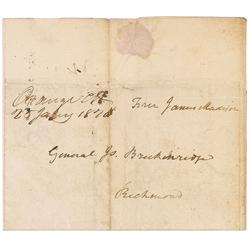 Orange CH
23 Jany 18
Free James Madison
General Js. Breckinridge
Richmond